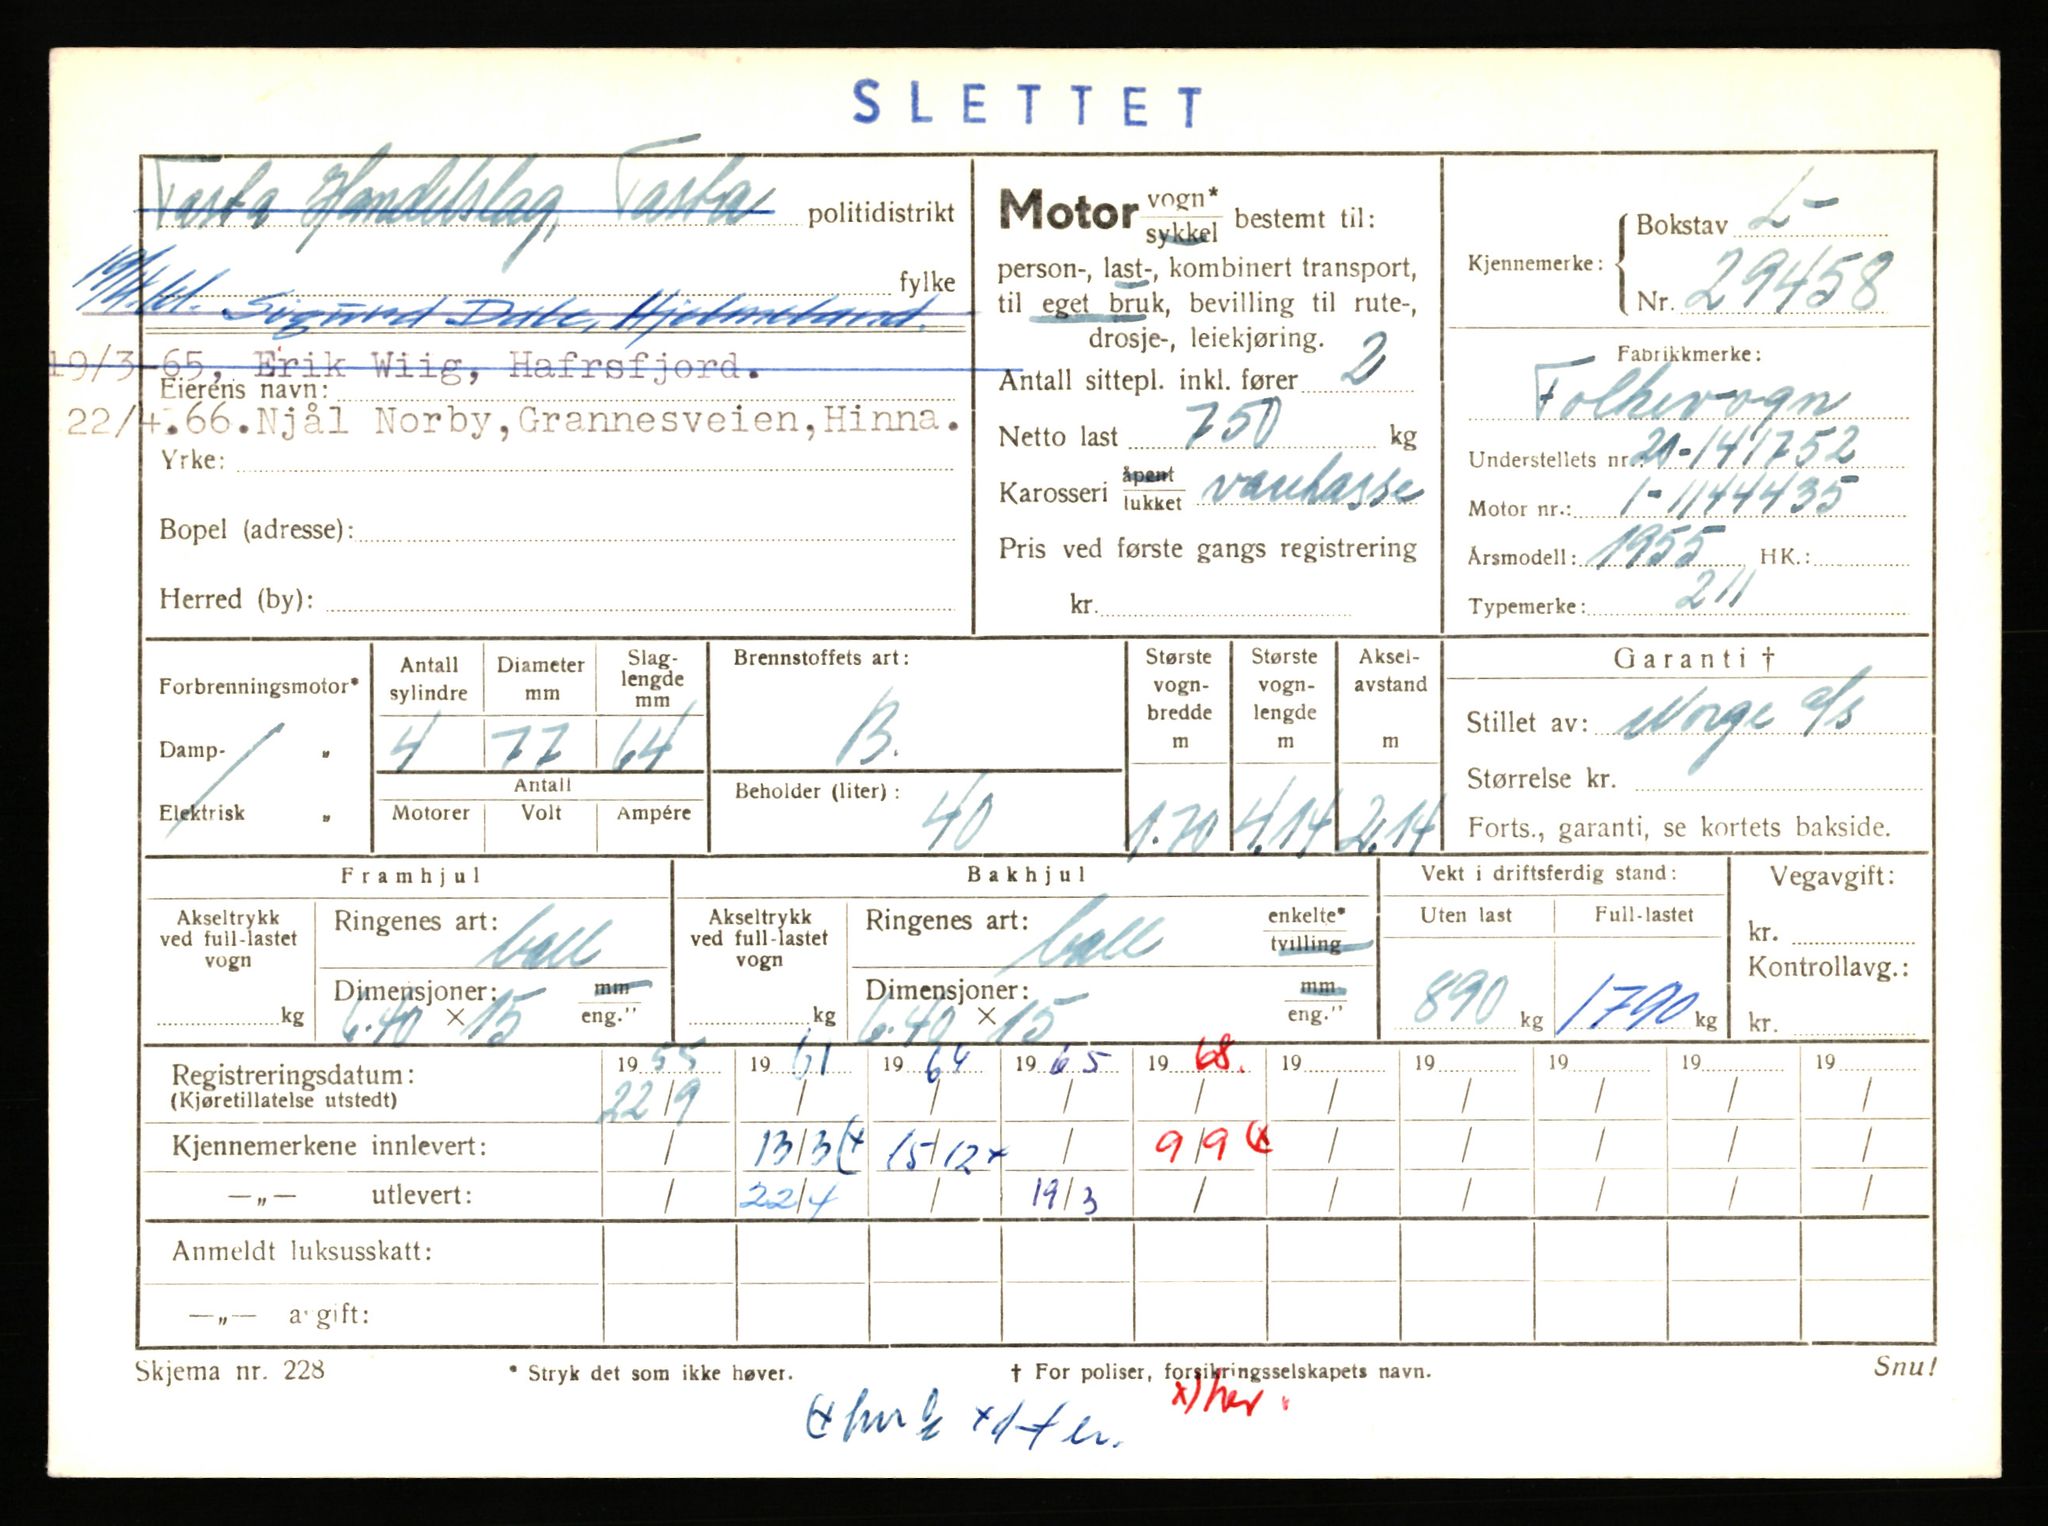 SLETTET
Tasta Handelslag, Tasta politidistrikt
fylke
Sigurd Dale, Hjelmeland.
19/3-65, Erik Wiig, Hafrsfjord.
Eierens navn:
22/4.66. Njål Norby, Grannesveien, Hinna.
Yrke:
Bopel (adresse):
Herred (by):
Motor vogn* / sykkel bestemt til:
person-, last-, kombinert transport,
til eget bruk, bevilling til rute-,
drosje-, leiekjøring.
Antall sittepl. inkl. fører 2
Netto last 750 kg
Karosseri åpent / lukket varekasse
Pris ved første gangs registrering
kr.
Kjennemerke: Bokstav L-
Nr. 29458
Fabrikkmerke:
Folkevogn
Understellets nr.: 20-141752
Motor nr.: 1-1144435
Årsmodell: 1955 HK.:
Typemerke: 211
Forbrenningsmotor*
Damp- „
Elektrisk „
Antall sylindre Diameter mm Slag-lengde mm
4 77 64
Antall
Motorer Volt Ampére
Brennstoffets art:
B.
Beholder (liter): 40
Største vogn-bredde m Største vogn-lengde m Aksel-avstand m
1.70 4.14 2.14
Garanti †
Stillet av: Norge a/s
Størrelse kr.
Forts., garanti, se kortets bakside.
Framhjul
Akseltrykk ved full-lastet vogn
kg
Ringenes art: ball
Dimensjoner: mm / eng."
6.40 × 15
Bakhjul
Akseltrykk ved full-lastet vogn
kg
Ringenes art: ball enkelte* / tvilling
Dimensjoner: mm / eng."
6.40 × 15
Vekt i driftsferdig stand:
Uten last Full-lastet
890 kg 1790 kg
Vegavgift:
kr.
Kontrollavg.:
kr.
Registreringsdatum: 19 55 19 61 19 64 19 65 19 68. 19 19 19 19 19
(Kjøretillatelse utstedt) 22/9 / / / / / / / / /
Kjennemerkene innlevert: / 13/3 (x 15/12 x / 9/9 (x / / / / /
—„— utlevert: / 22/4 / 19/3 / / / / / /
Anmeldt luksusskatt:
—„— avgift:
Skjema nr. 228 * Stryk det som ikke høver. † For poliser, forsikringsselskapets navn. Snu!
x) her.